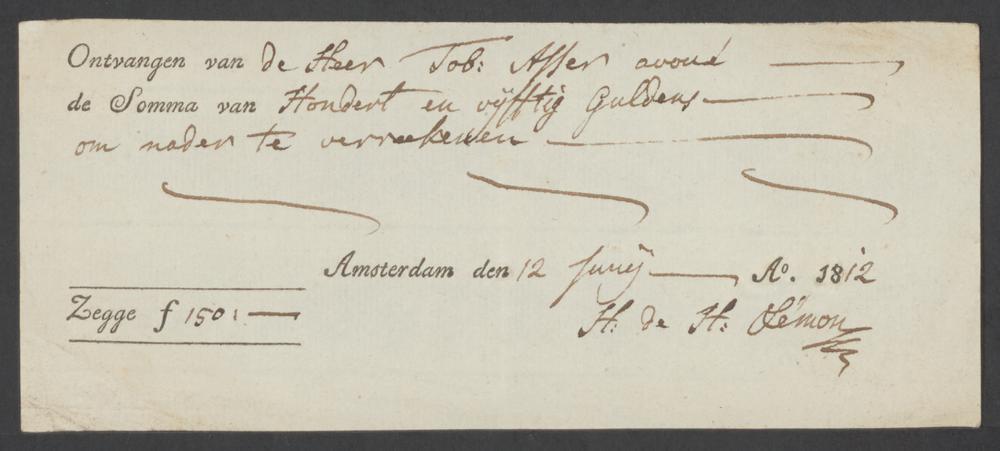 Ontvangen van de Heer Tob: Asser avoué
de Somma van Hondert en vÿfftig Guldens
om nader te verreekenen
Amsterdam den 12 Junij Ao. 1812
Zegge f 150:
H: de H: Lémon